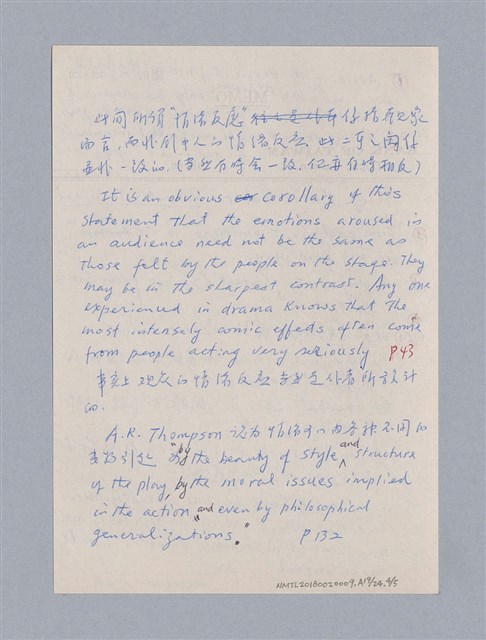 此间所谓"情绪反应" 係指观众
而言，而非剧中人的情绪反应，此二者之间係
并非一致的。(当然有时会一致，但亦有时相反)
It is an obvious corollary of this
statement that the emotions aroused in
an audience need not be the same as
those felt by the people on the stage. They
may be in the sharpest contrast. Any one
experienced in drama knows that the
most intensely comic effects often come
from people acting very seriously P43
事实上观众的情绪反应 当然是作者所设计
的。
A.R. Thompson 认为情绪可以由各种不同的
事物引起 "by the beauty of style and structure
of the play, by the moral issues implied
in the action, and even by philosophical
generalizations." P132
NMTL20180020009.A